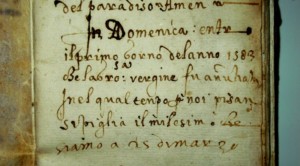 del paradiso Amen
In Domenica: entr
il primo gorno del anno 1583
la vergine fu anu
Nel qual tempo noi pisan
si piglia il milesimo
a 25 di marzo